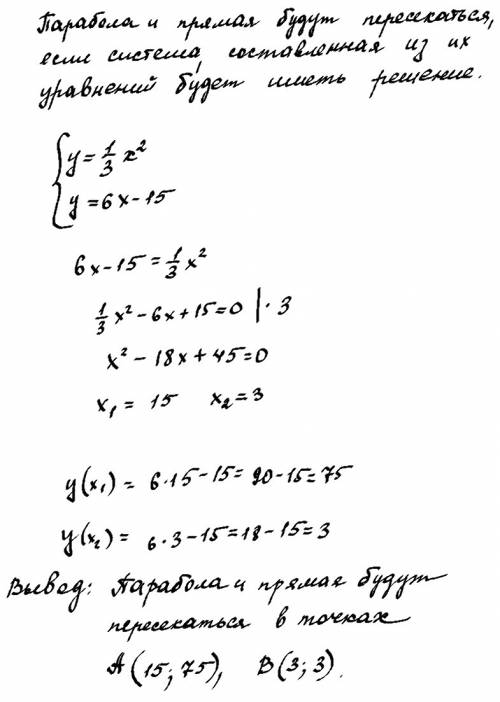 Парабола и прямая будут пересекаться,
если система, составленная из их
уравнений будет иметь решение.
{ y = 1/3 x²
y = 6x - 15
6x - 15 = 1/3 x²
1/3 x² - 6x + 15 = 0 | · 3
x² - 18x + 45 = 0
x₁ = 15 x₂ = 3
y(x₁) = 6·15 - 15 = 90 - 15 = 75
y(x₂) = 6·3 - 15 = 18 - 15 = 3
Вывод: Парабола и прямая будут
пересекаться в точках
A(15; 75), B(3; 3).